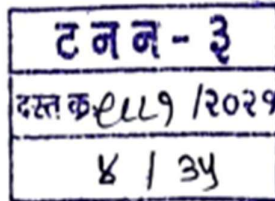 ट न न - ३
दस्त क्र /२०२१
४ / ३५